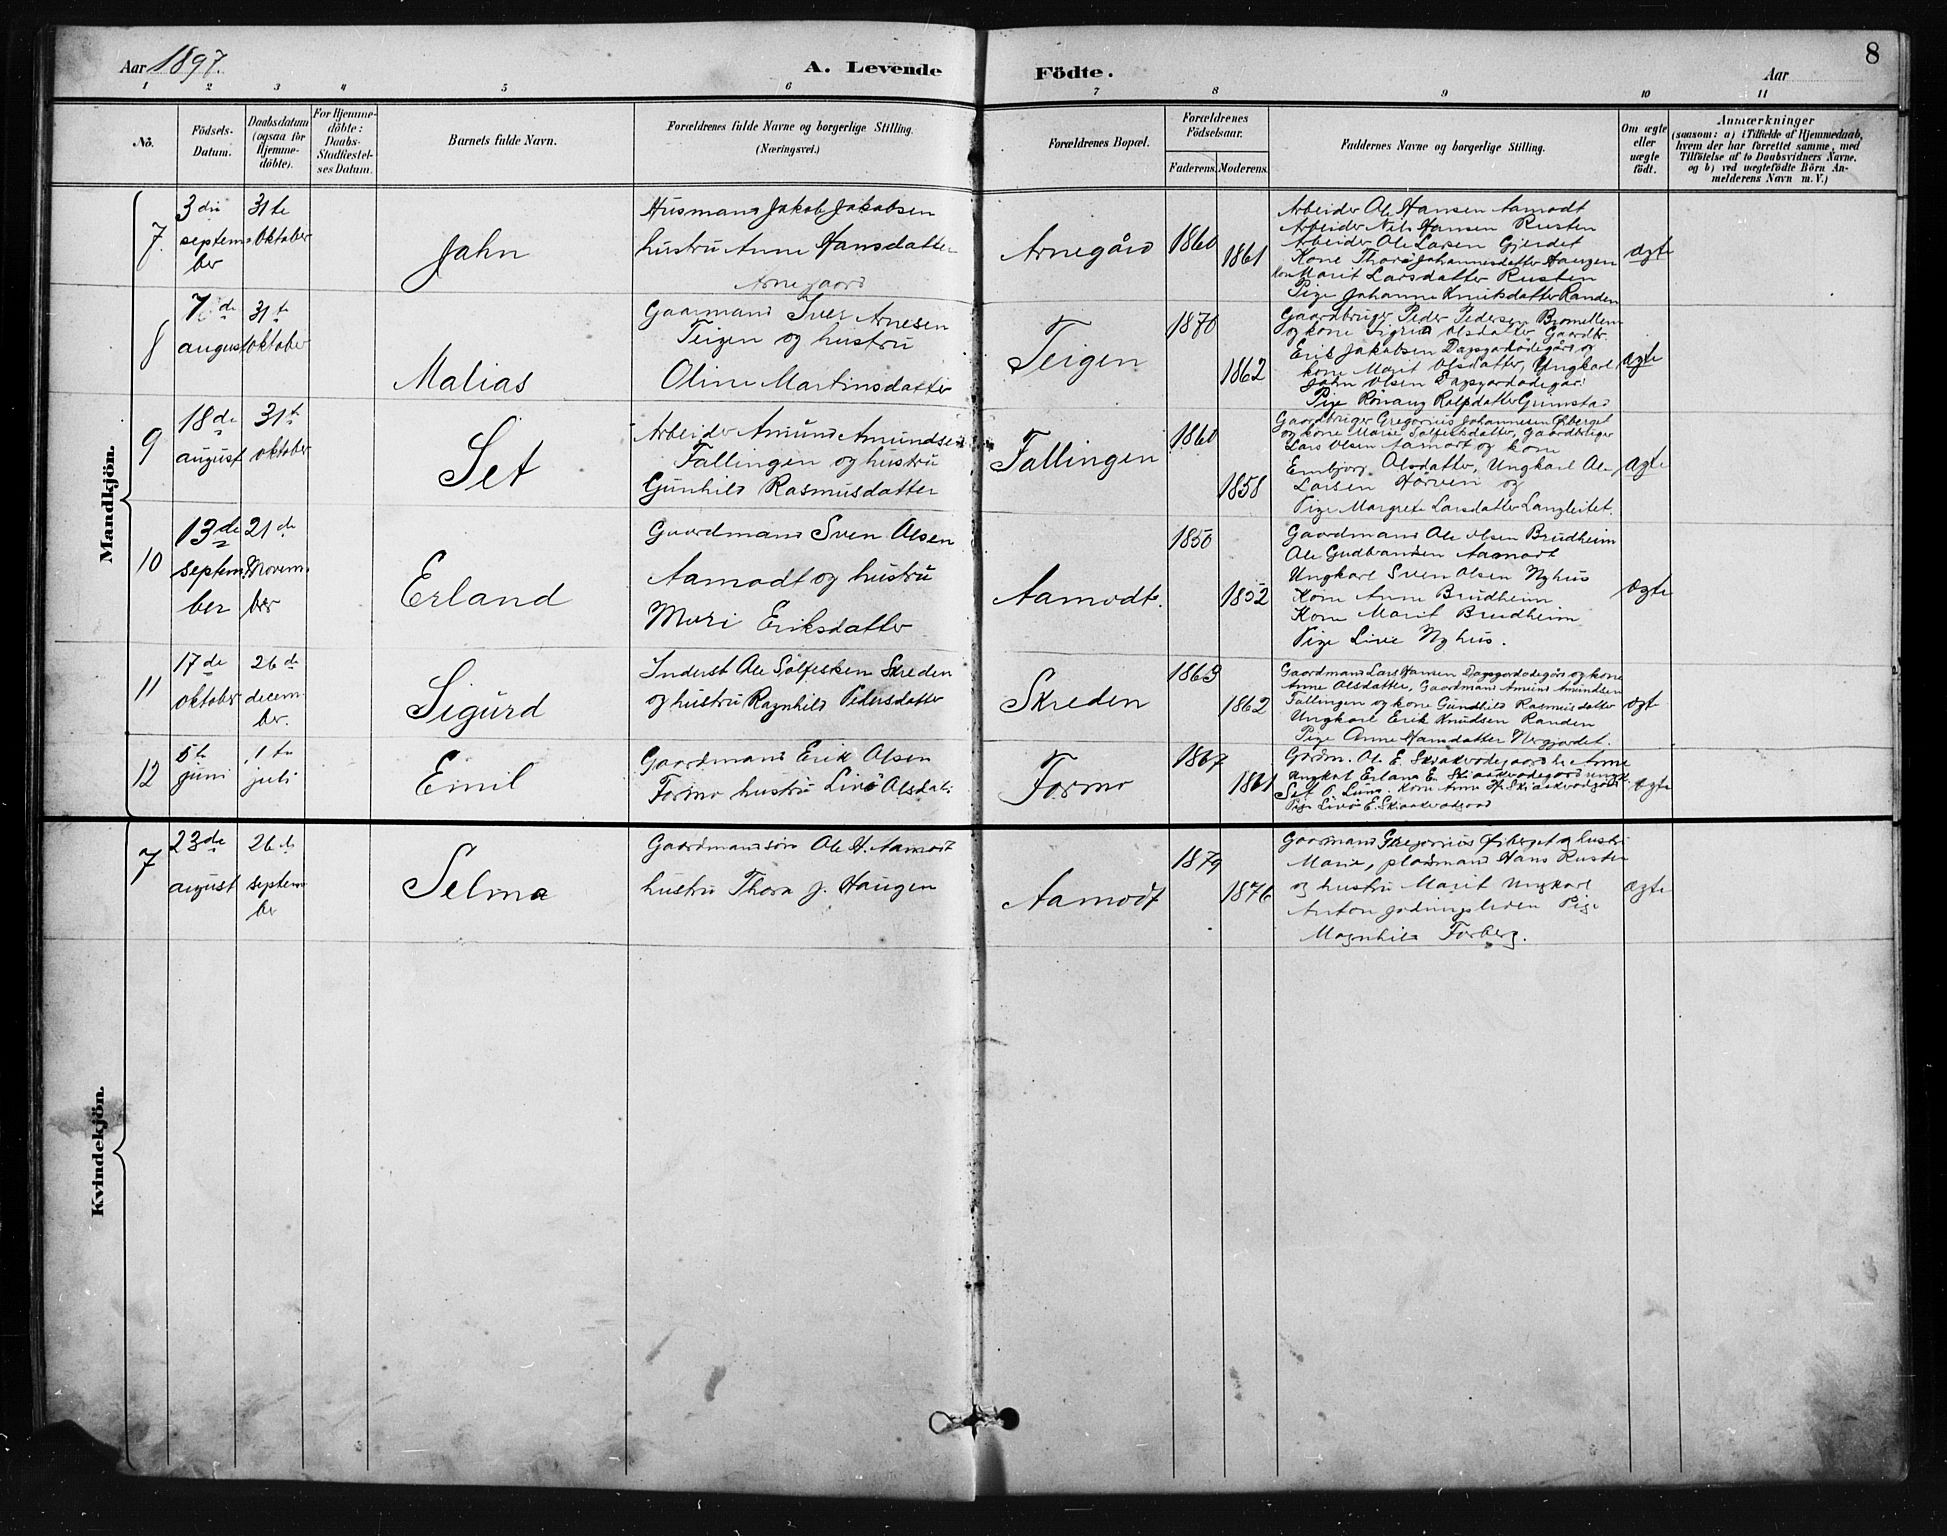 8
Aar 1897.
A. Levende Födte.
Aar
1 2 3 4 5 6 7 8 9 10 11
No.
Födsels-
Datum.
Daabsdatum
(ogsaa for
Hjemme-
döbte).
For Hjemme-
döbte:
Daabs-
Stadfæstel-
ses Datum.
Barnets fulde Navn.
Forældrenes fulde Navne og borgerlige Stilling.
(Næringsvei.)
Forældrenes Bopæl.
Forældrenes
Födselsaar.
Faderens. Moderens.
Faddernes Navne og borgerlige Stilling.
Om ægte
eller
uægte
födt.
Anmærkninger
(saasom: a) i Tilfælde af Hjemmedaab,
hvem der har forrettet samme, med
Tilföielse af to Daabsvidners Navne.
og b) ved uægtefödte Börn An-
melderens Navn m. V.)
Mandkjön.
7
3die
septem-
ber
31te
Oktober
Jahn
Husmand Jakob Jakobsen
hustru Anne Hansdatter
Arnegaard
Arnegård
1860
1861
Arbeider Ole Hansen Aamodt
Arbeider Nils Hansen Rusten
Arbeider Ole Larsen Gjerdet
Kone Thora Johannesdatter Haugen
Kone Marit Larsdatter Rusten
Pige Johanne Knutsdatter Randen
ægte
8
7de
august
31te
oktober
Malias
Gaarmand Iver Arnesen
Teigen og hustru
Oline Martinsdatter
Teigen
1870
1862
Gaardbruger Peder Pedersen
og kone Sigrid Olsdatter, Gaardbr.
Erik Jakobsen og
kone Marit Olsdatter, Ungkarl
John Olsen
Pige Rønnaug Grimstad
ægte
9
18de
august
31te
oktober
Set
Arbeider Amund Amundsen
Fallingen og hustru
Gunhild Rasmusdatter
Fallingen
1860
1858
Gaardbruger Gregorius Johannesen Øiberget
og kone Marie Solfestsdatter, Gaardbruger
Lars Olsen Aamodt og kone
Embjorg Olsdatter, Ungkarl Ole
Larsen Hörven og
Pige Margrete Larsdatter Langleitet.
ægte
10
13de
septem-
ber
21de
Novem-
ber
Erland
Gaardmand Sven Olsen
Aamodt og hustru
Mari Eriksdatter
Aamodt.
1850
1852
Gaardmand Ole Olsen Brudheim
Ole Gudbrandsen Aamodt
Ungkarl Sven Olsen Nyhus
Kone Anne Brudheim
Kone Marit Brudheim
Pige Live Nyhus.
ægte
11
17de
oktober
26de
decem-
ber.
Sigurd
Inderst Ole Solfestsen Skreden
og hustru Ragnhild Pedersdatter
Skreden
1863
1862
Gaardmand Lars Hansen og kone
Anne Olsdatter, Gaardmand Amund Amundsen
Fallingen og kone Gunhild Rasmusdatter
Ungkarl Erik Knudsen Randen
Pige Anne Hansdatter
ægte
12
5te
juni
1te
juli
Emil
Gaardmand Erik Olsen
Formo hustru Livø Olsdatr
Formo
1867
1861
Gårdm. Ole E. Skiaakvodegaard h. Anne
Ungkarl Erland E. Skiaakvodegaard ungk.
Set P. Lund. Kone Anne H. Skiaakvodgaard
Pige Livø E. Skiaakvodgaard
ægte
Kvindekjön.
7
23de
august
26de
septem-
ber
Selma
Gaardmandssön Ole H. Aamodt
hustru Thora J. Haugen
Aamodt
1879
1876
Gaarmand Gregorius Øiberget og hustru
Marie, pladsmand Hans Rusten
og hustru Marit Ungkarl
Anton Pige
Magnhild Forberg.
ægte